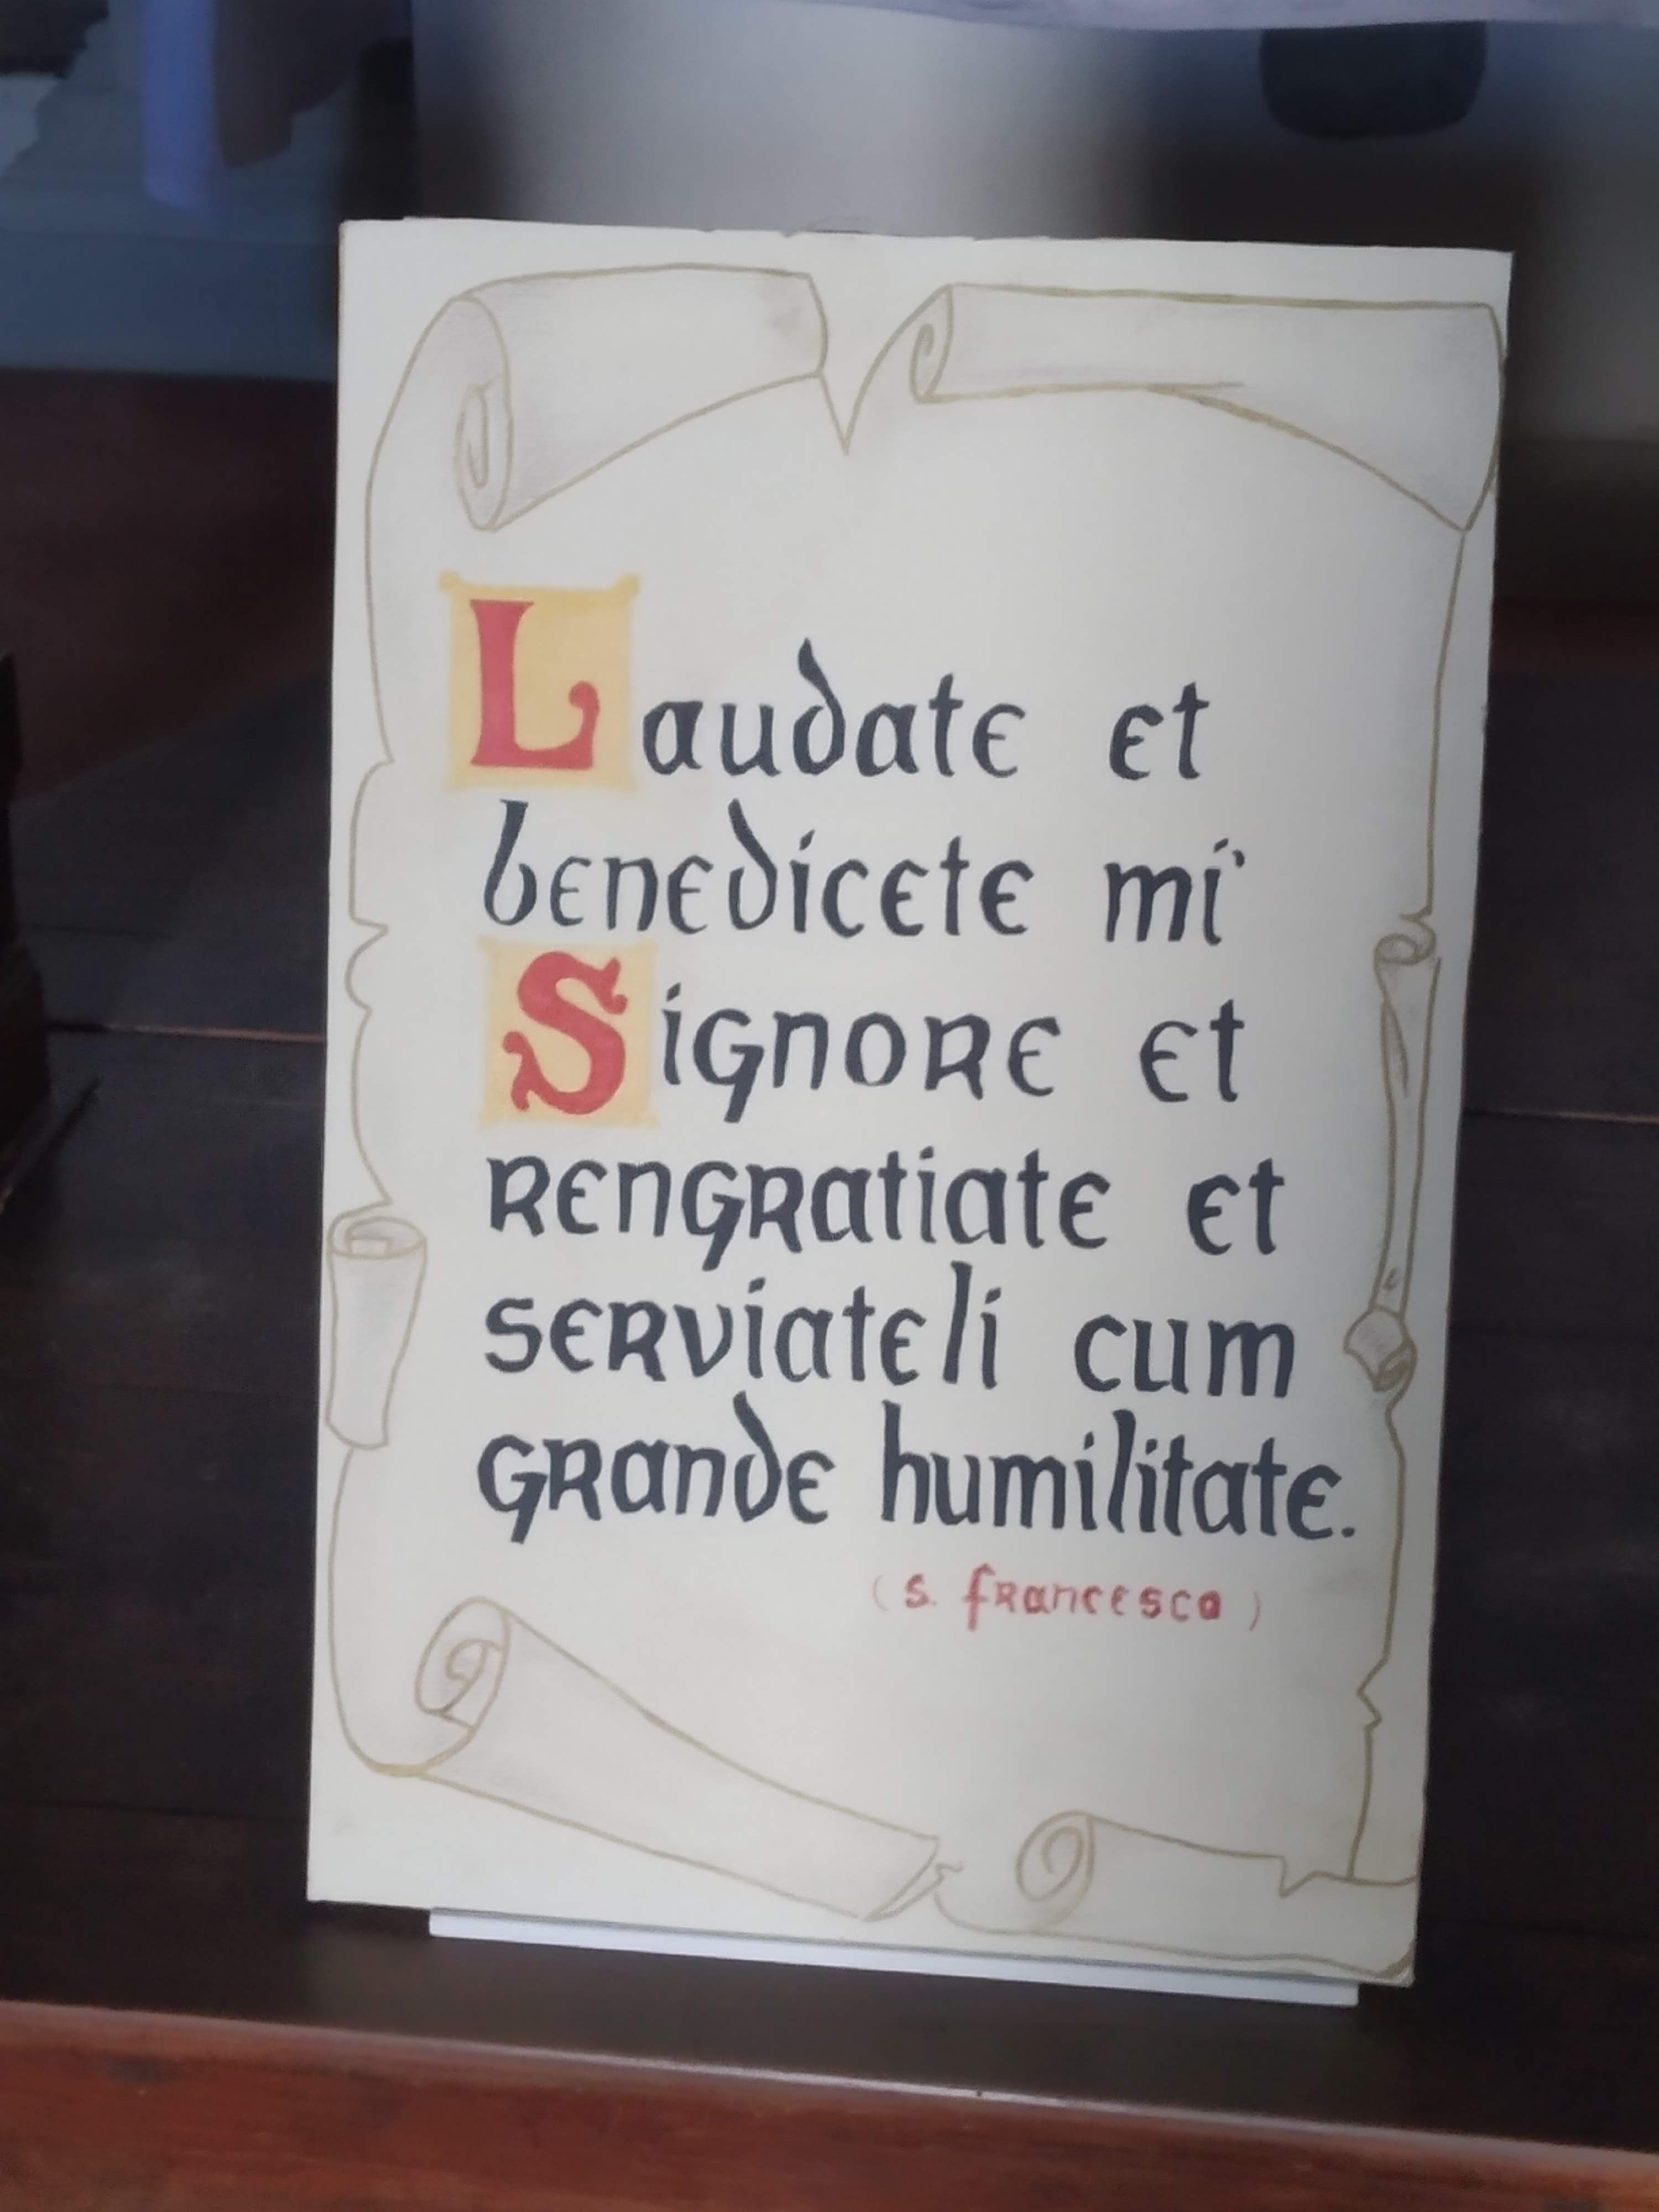 Laudate et
benedicete mi'
Signore et
rengratiate et
serviateli cum
grande humilitate.
(s. francesco)